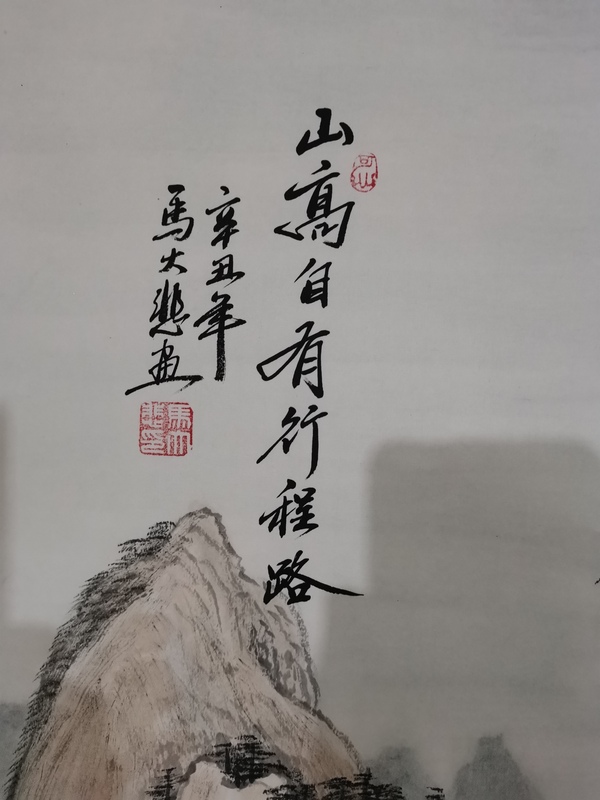 山高自有行程路
辛丑年
馬大悲画
馬大悲印